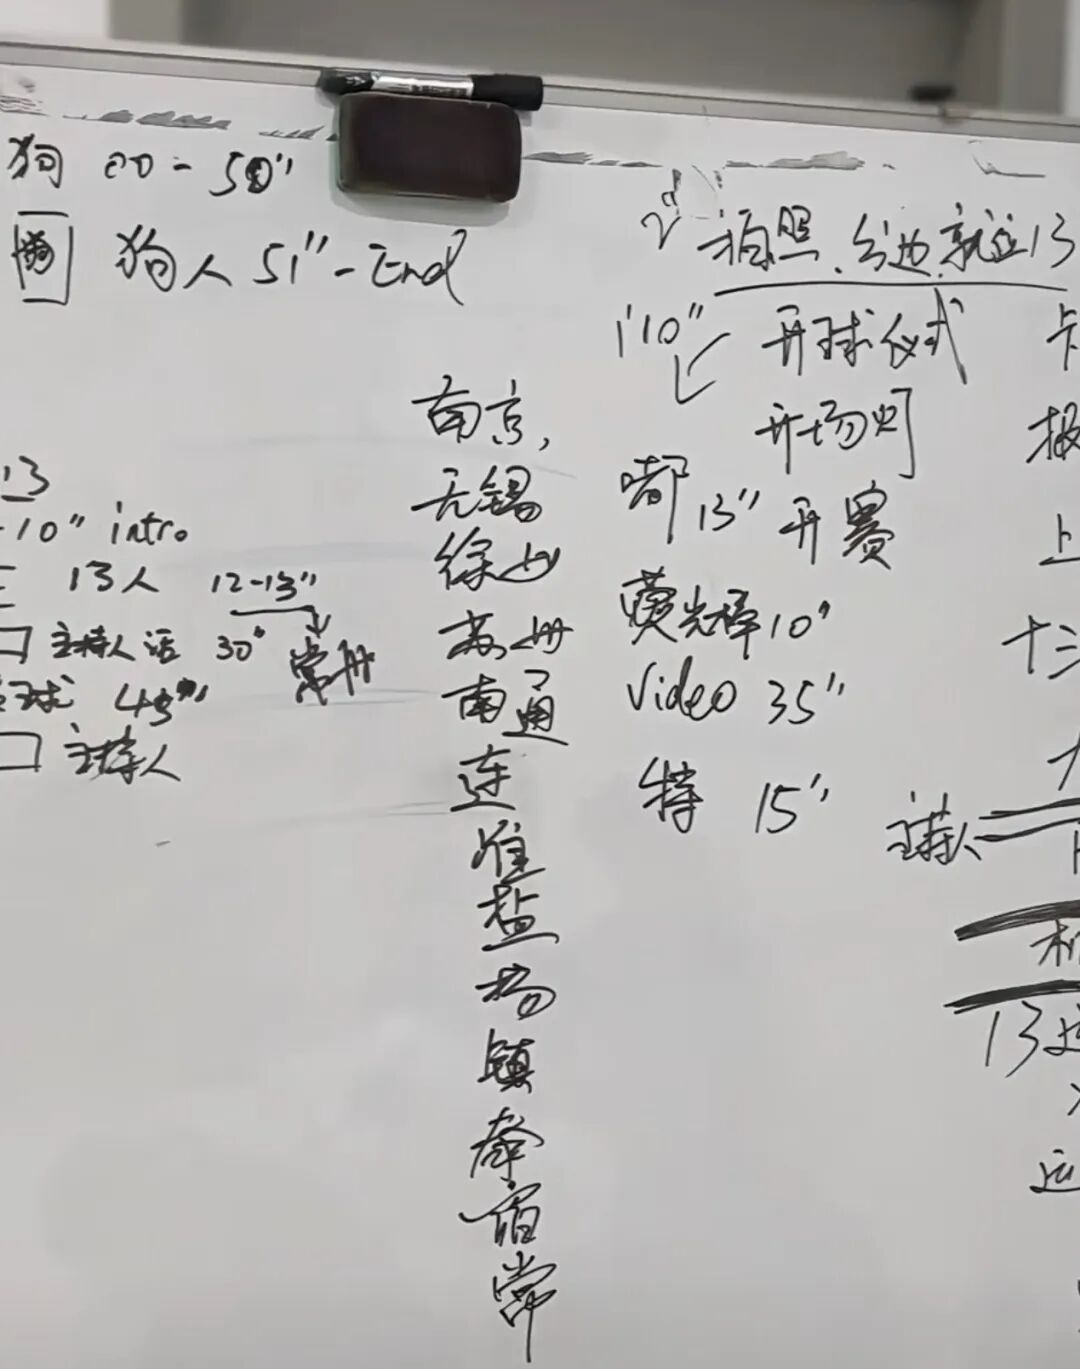 狗 00-50"
狗人 51"-End
13
-10" intro
13人 12-13"
主持人话 30" 常州
球 45"
主持人
南京,
无锡
徐州
苏州
南通
连
淮
盐
扬
镇
泰
宿
常
2'
拍照.分边.就位13
1'10" 开球仪式
开场灯
嘟 13" 开赛
荧光棒10"
Video 35"
特 15"
卡
报
上
十三
主持人
13